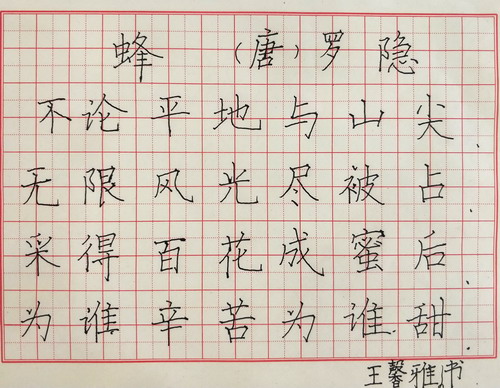 蜂 （唐）罗隐
不论平地与山尖、
无限风光尽被占、
采得百花成蜜后、
为谁辛苦为谁甜.
王馨雅书